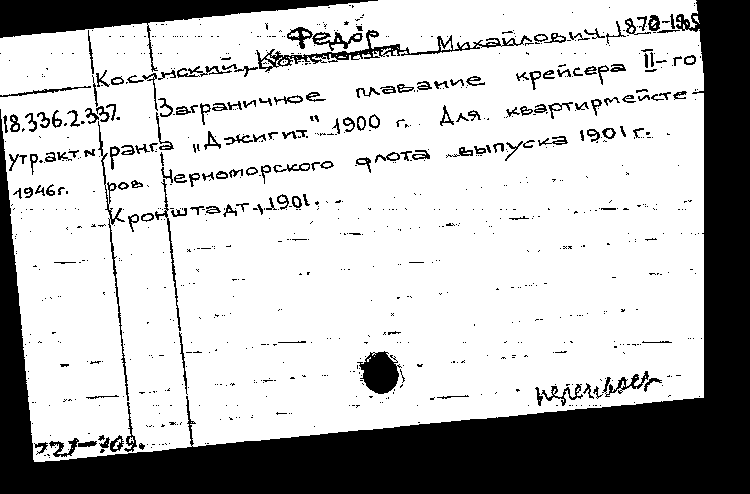 Федор
Косинский, Константин Михайлович, 1870-1905
18.336.2.337. Заграничное плавание крейсера II-го
утр.акт.№1 ранга "Джигит" 1900 г. Для квартирмейсте-
1946г. ров Черноморского флота выпуска 1901 г.
Кронштадт, 1901.
221-709.